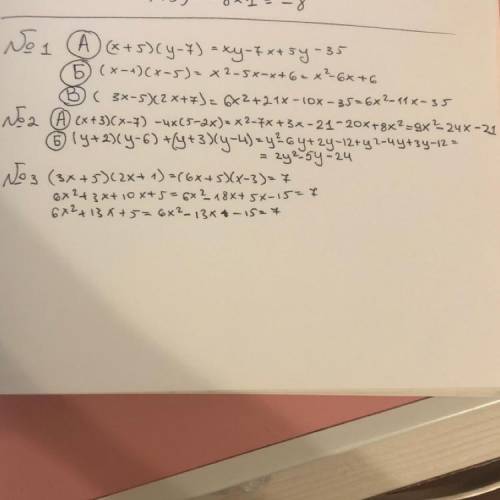 = -8
№1 А (x+5)(y-7) = xy-7x+5y-35
Б (x-1)(x-5) = x²-5x-x+6 = x²-6x+6
В ( 3x-5)(2x+7) = 6x²+21x-10x-35 = 6x²-11x-35
№2 А (x+3)(x-7) -4x(5-2x) = x²-7x+3x-21-20x+8x² = 9x²-24x-21
Б (y+2)(y-6) +(y+3)(y-4) = y²-6y+2y-12+y²-4y+3y-12 =
= 2y²-5y-24
№3 (3x+5)(2x+1) = (6x+5)(x-3) = 7
6x²+3x+10x+5 = 6x²-18x+5x-15 = 7
6x²+13x+5 = 6x²-13x-15 = 7